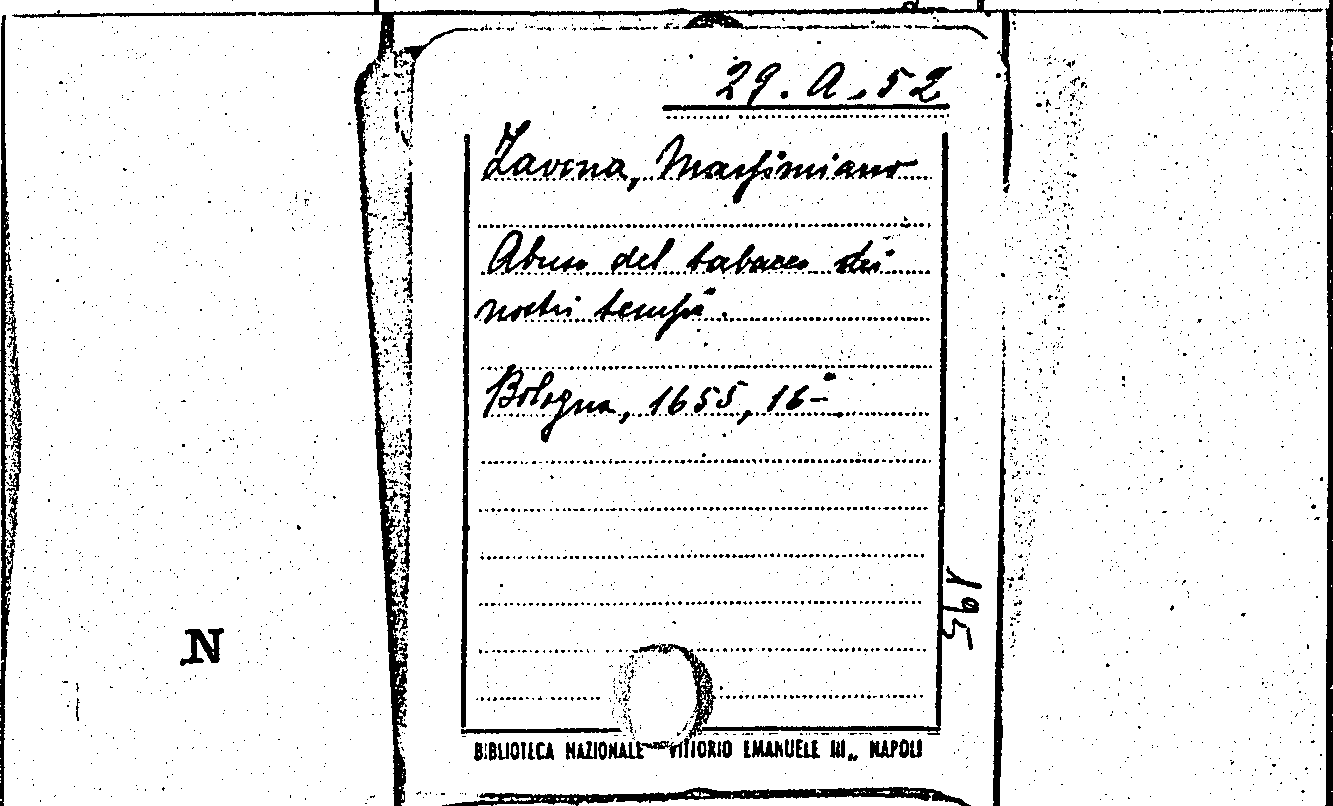 29. A. 52
Zavona, Massimiano
Abuso del tabacco dei
nostri tempi.
Bologna, 1655, 16°.
195
N
BIBLIOTECA NAZIONALE "VITTORIO EMANUELE III„ NAPOLI